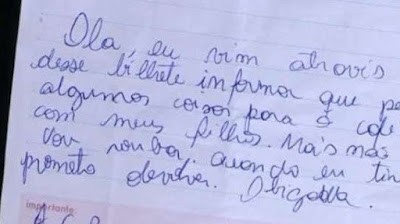 Ola, eu vim atrovis
desse bilhete informar que pe
algumas coisas para o cafe
com meus filhos. Mais não
vou roubar. quando eu tin
prometo devolver. Desgosta.
importante